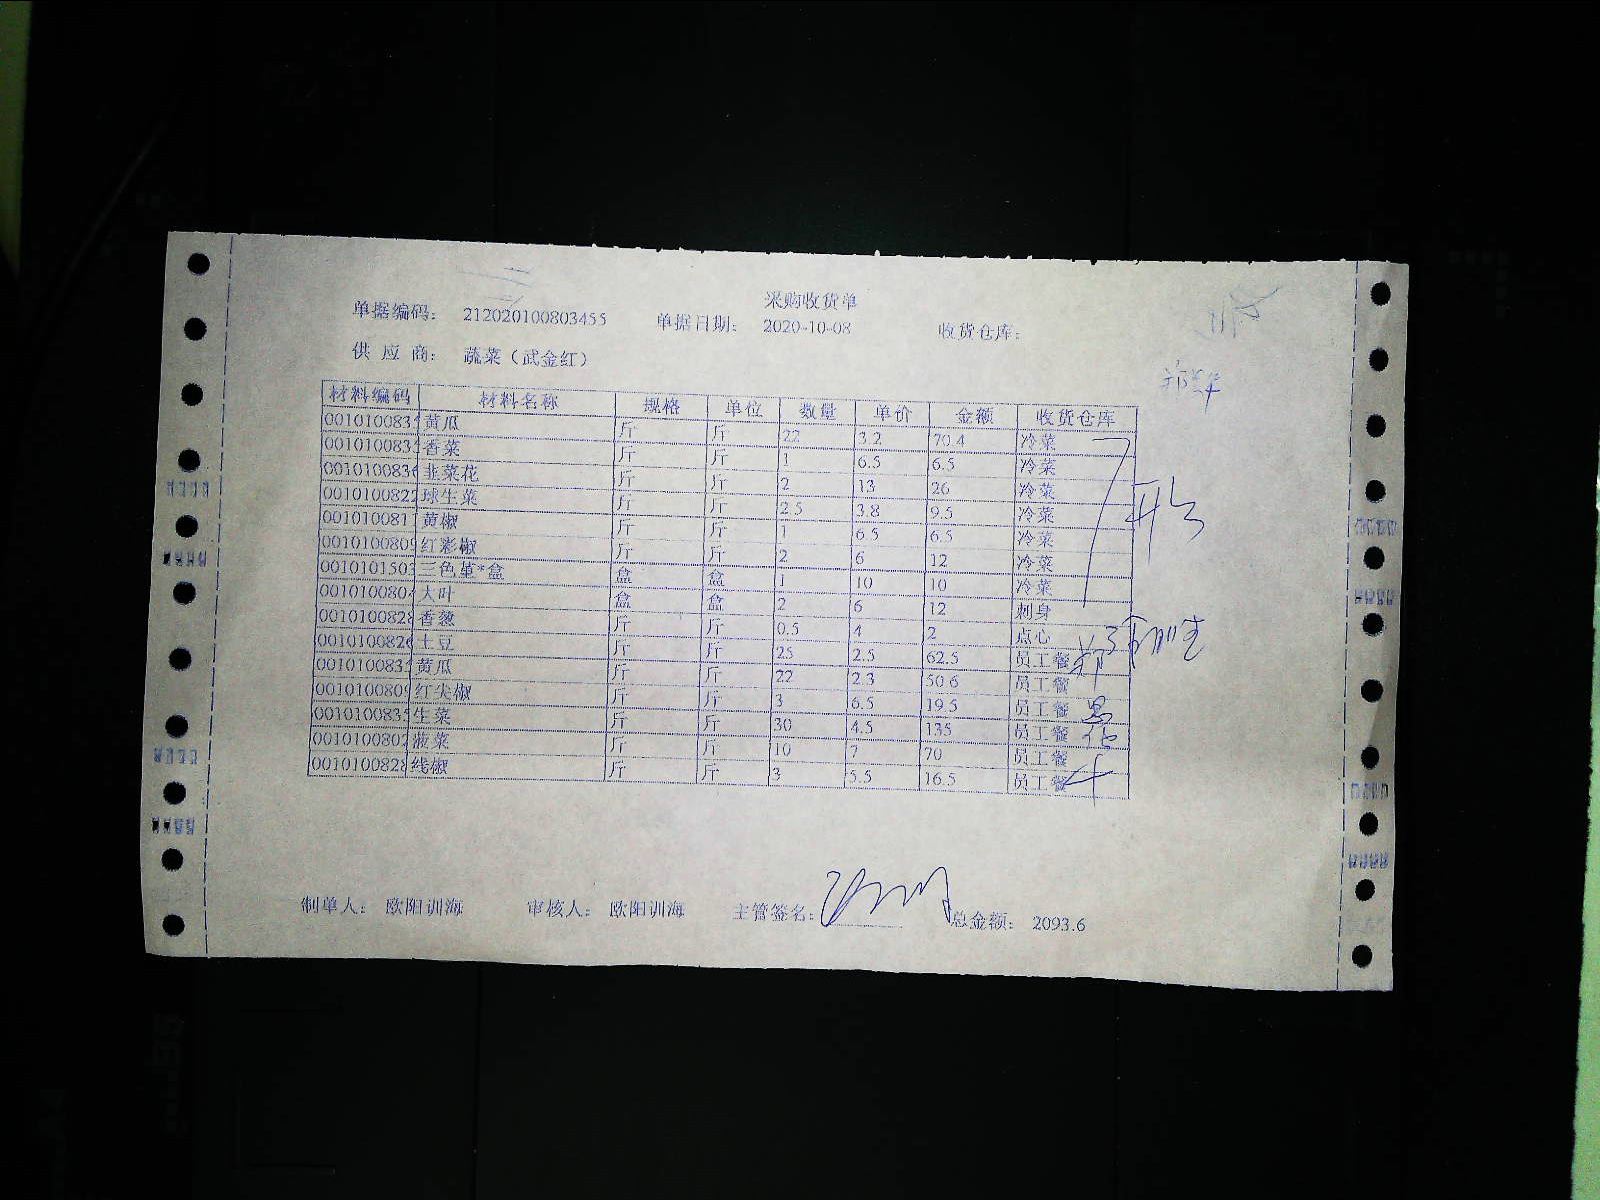 采购收货单
单据编码: 212020100803455 单据日期: 2020-10-08 收货仓库:
供 应 商: 蔬菜（武金红）
材料编码 材料名称 规格 单位 数量 单价 金额 收货仓库
001010083 黄瓜 斤 斤 22 3.2 70.4 冷菜
001010083 香菜 斤 斤 1 6.5 6.5 冷菜
001010083 韭菜花 斤 斤 2 13 26 冷菜
001010082 球生菜 斤 斤 2.5 3.8 9.5 冷菜
001010081 黄椒 斤 斤 1 6.5 6.5 冷菜
001010080 红彩椒 斤 斤 2 6 12 冷菜
001010150 三色堇*盒 盒 盒 1 10 10 冷菜
001010080 大叶 盒 盒 2 6 12 刺身
001010082 香葱 斤 斤 0.5 4 2 点心
001010082 土豆 斤 斤 25 2.5 62.5 员工餐
001010083 黄瓜 斤 斤 22 2.3 50.6 员工餐
001010080 红尖椒 斤 斤 3 6.5 19.5 员工餐
001010083 生菜 斤 斤 30 4.5 135 员工餐
001010080 菠菜 斤 斤 10 7 70 员工餐
001010082 线椒 斤 斤 3 5.5 16.5 员工餐
制单人: 欧阳训海 审核人: 欧阳训海 主管签名: 总金额: 2093.6